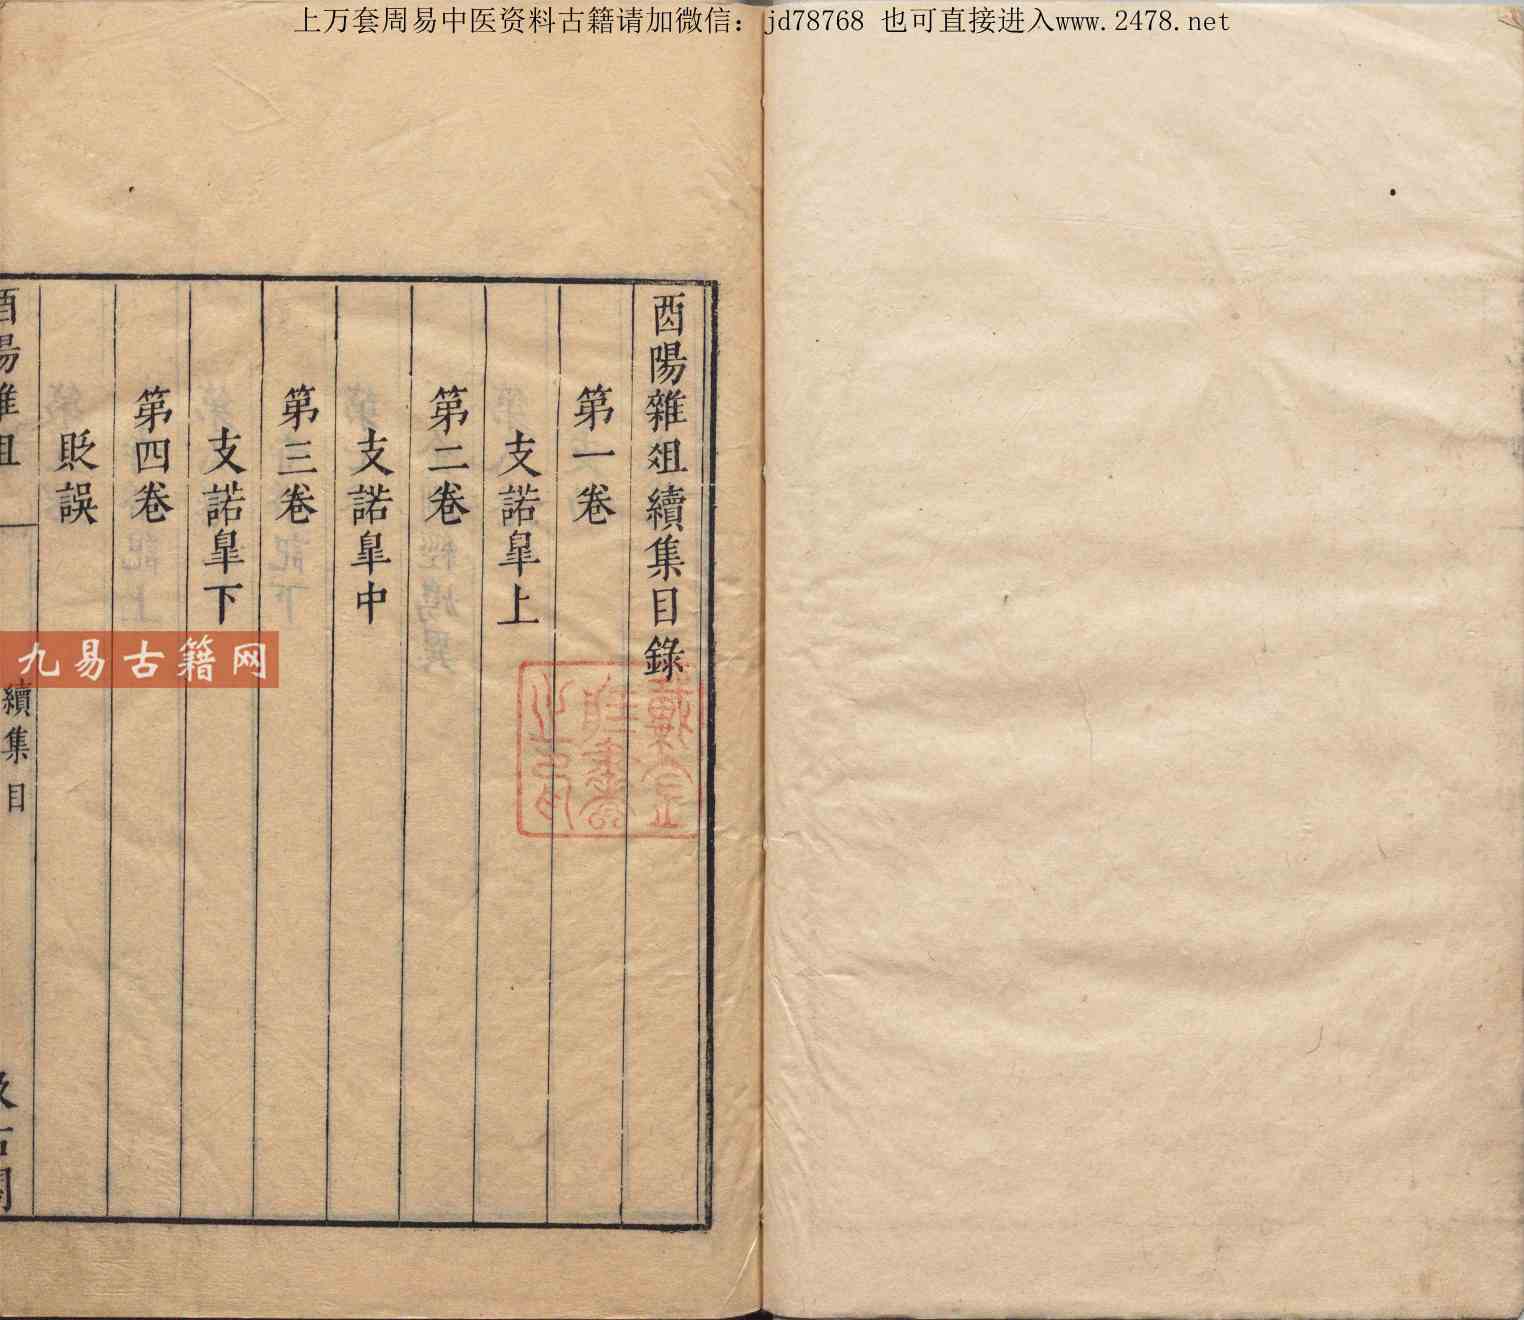 上万套周易中医资料古籍请加微信：jd78768 也可直接进入www.2478.net
酉陽雜俎續集目錄
第一卷
支諾皐上
第二卷
支諾皐中
第三卷
支諾皐下
第四卷
貶誤
酉陽雜俎
續集目
汲古閣
九易古籍网